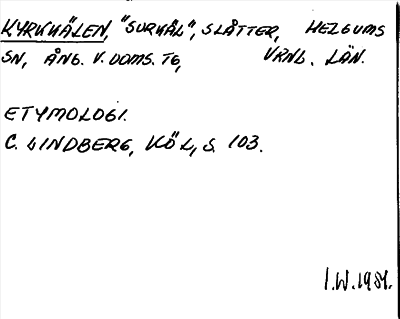 KYRKHÅLEN, "SURKÅL", SLÅTTER, HELGUMS
SN, ÅNG. V. DOMS. TG, VRNL. LÄN.
ETYMOLOGI.
C. LINDBERG, KÖL, S. 103.
I.W. 1981.